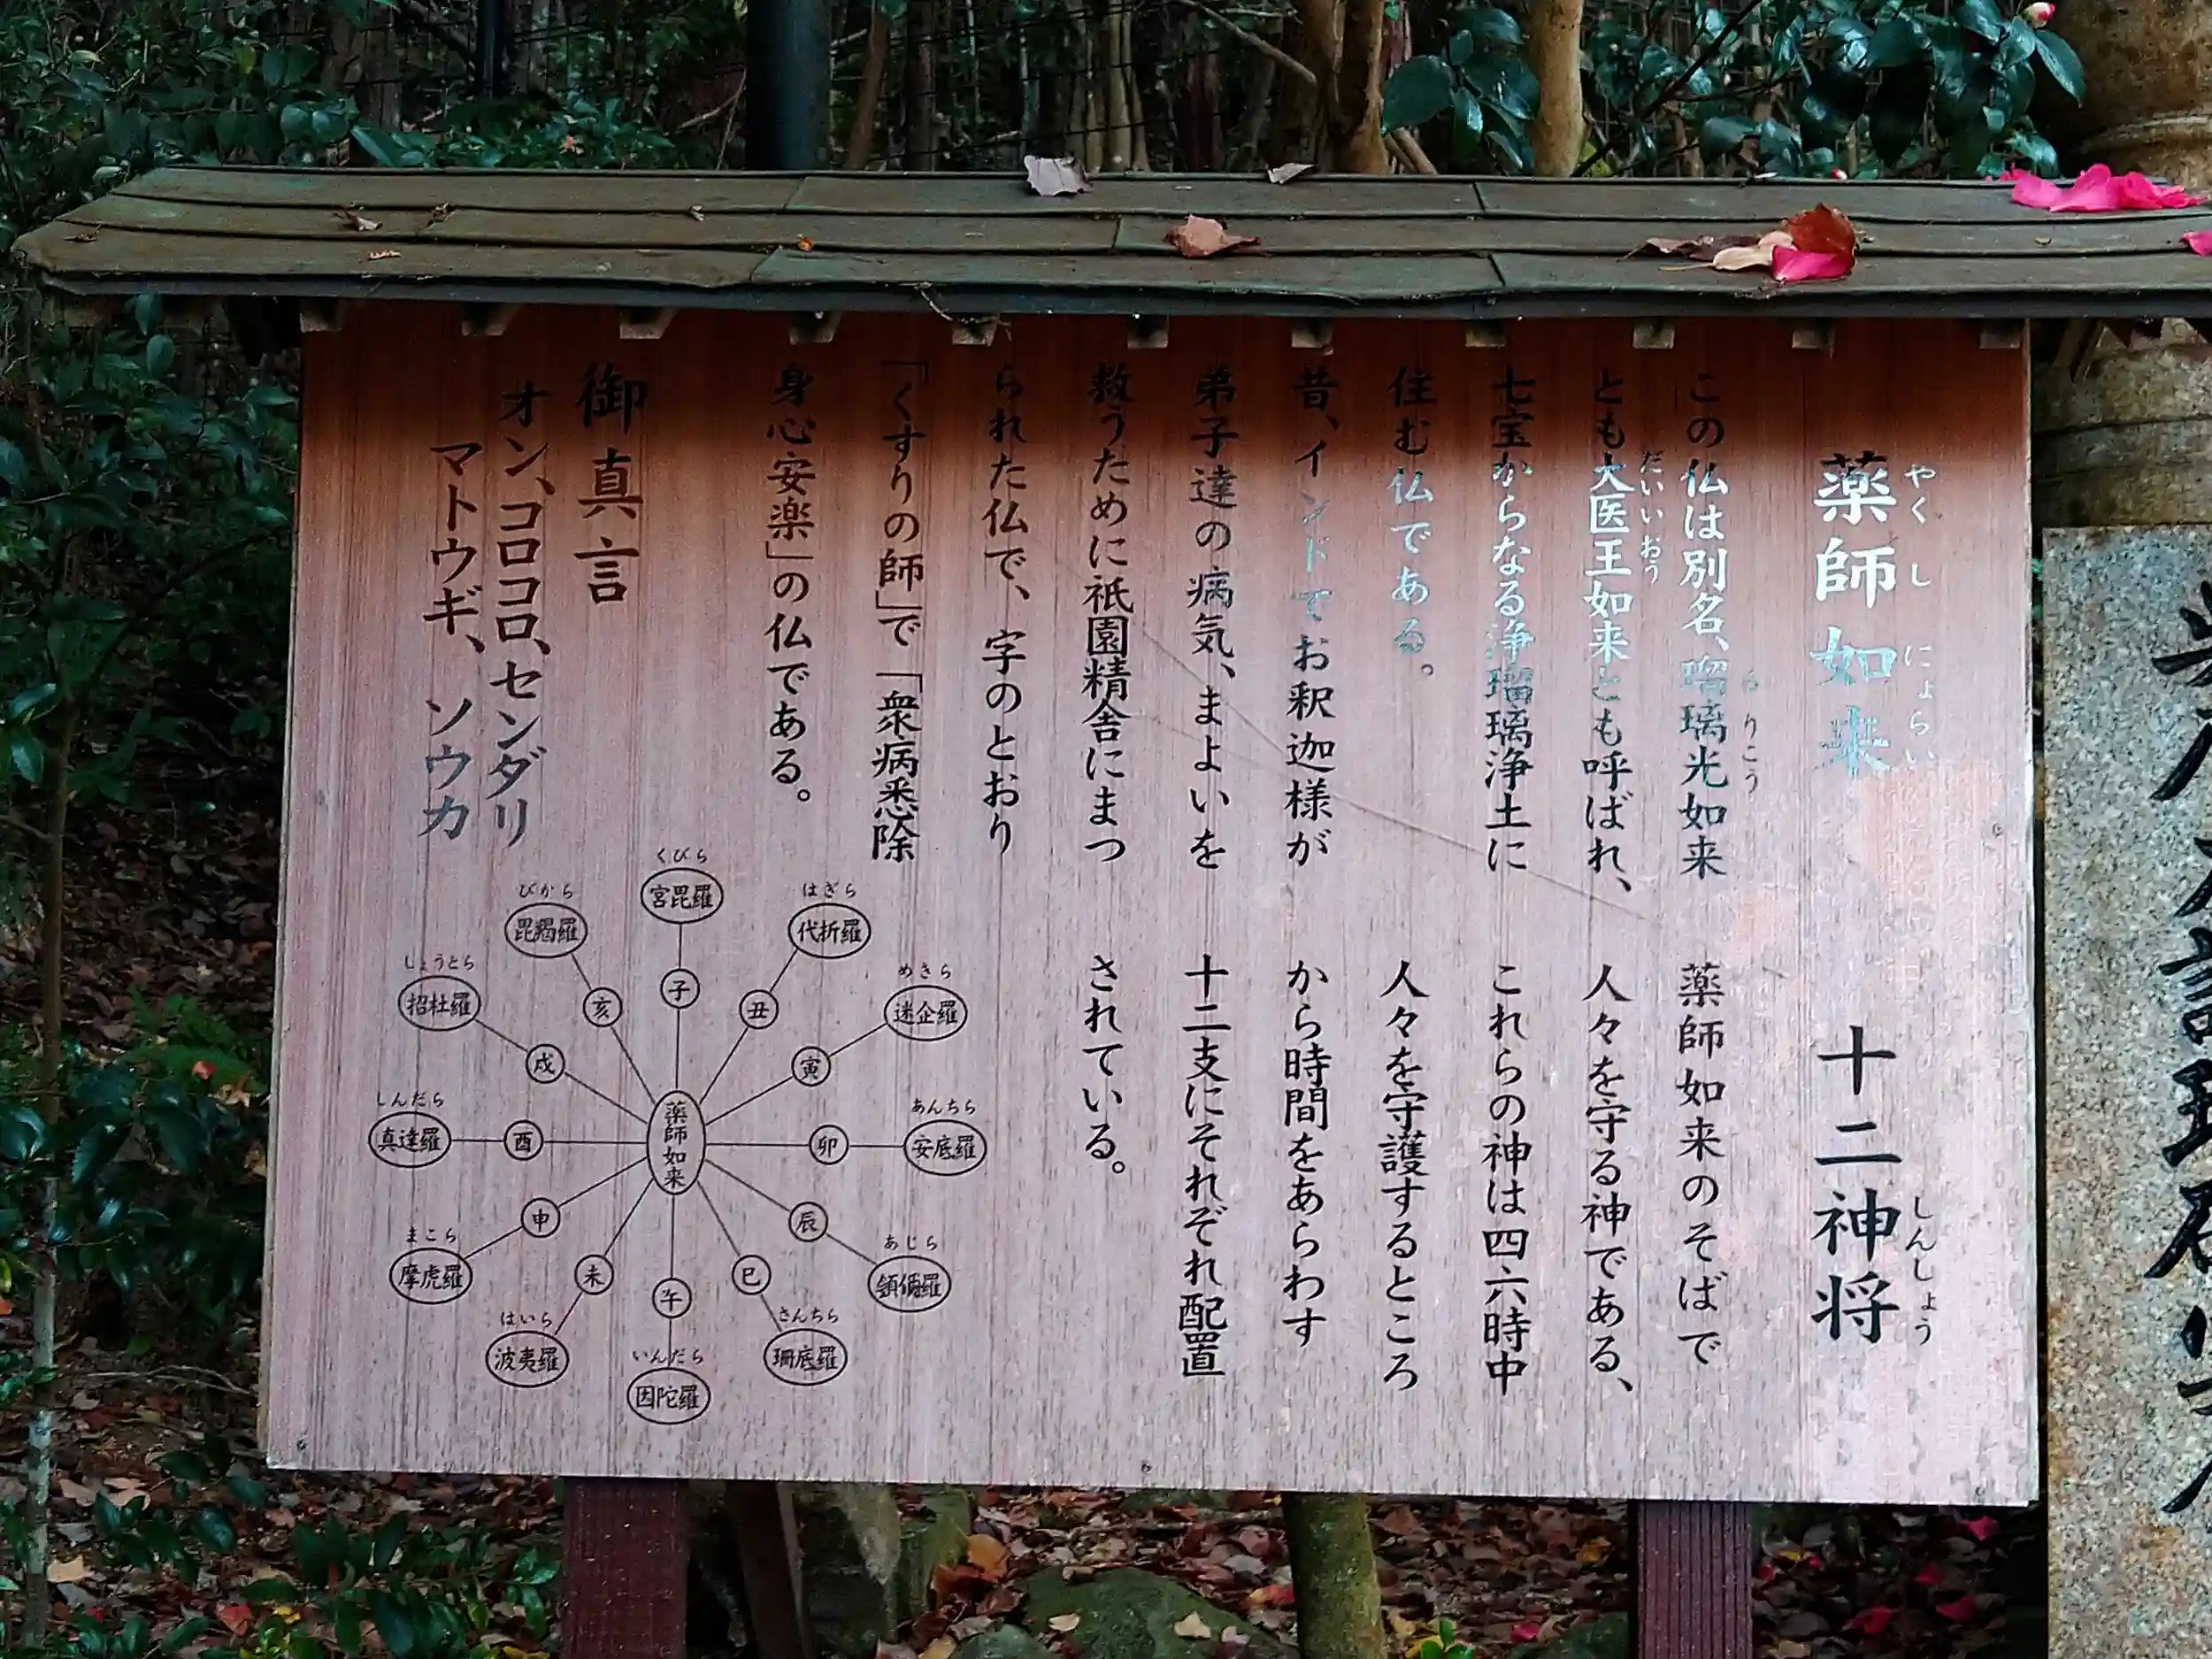 薬師如来
やくしにょらい
この仏は別名、瑠璃光如来
るりこう
とも大医王如来とも呼ばれ、
だいいおう
七宝からなる浄瑠璃浄土に
住む仏である。
昔、インドでお釈迦様が
弟子達の病気、まよいを
救うために祇園精舎にまつ
られた仏で、字のとおり
「くすりの師」で「衆病悉除
身心安楽」の仏である。
御真言
オン、コロコロ、センダリ
マトウギ、ソウカ
十二神将
しんしょう
薬師如来のそばで
人々を守る神である、
これらの神は四六時中
人々を守護するところ
から時間をあらわす
十二支にそれぞれ配置
されている。
薬師如来
子
宮毘羅
くびら
丑
代折羅
はぎら
寅
迷企羅
めきら
卯
安底羅
あんちら
辰
頞儞羅
あじら
巳
珊底羅
さんちら
午
因陀羅
いんだら
未
波夷羅
はいら
申
摩虎羅
まこら
酉
真達羅
しんだら
戌
招杜羅
しょうとら
亥
毘羯羅
びから